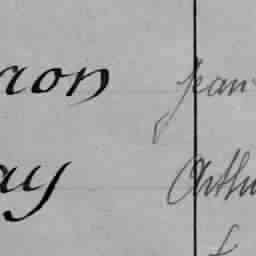 ron Jean
ay Arthu